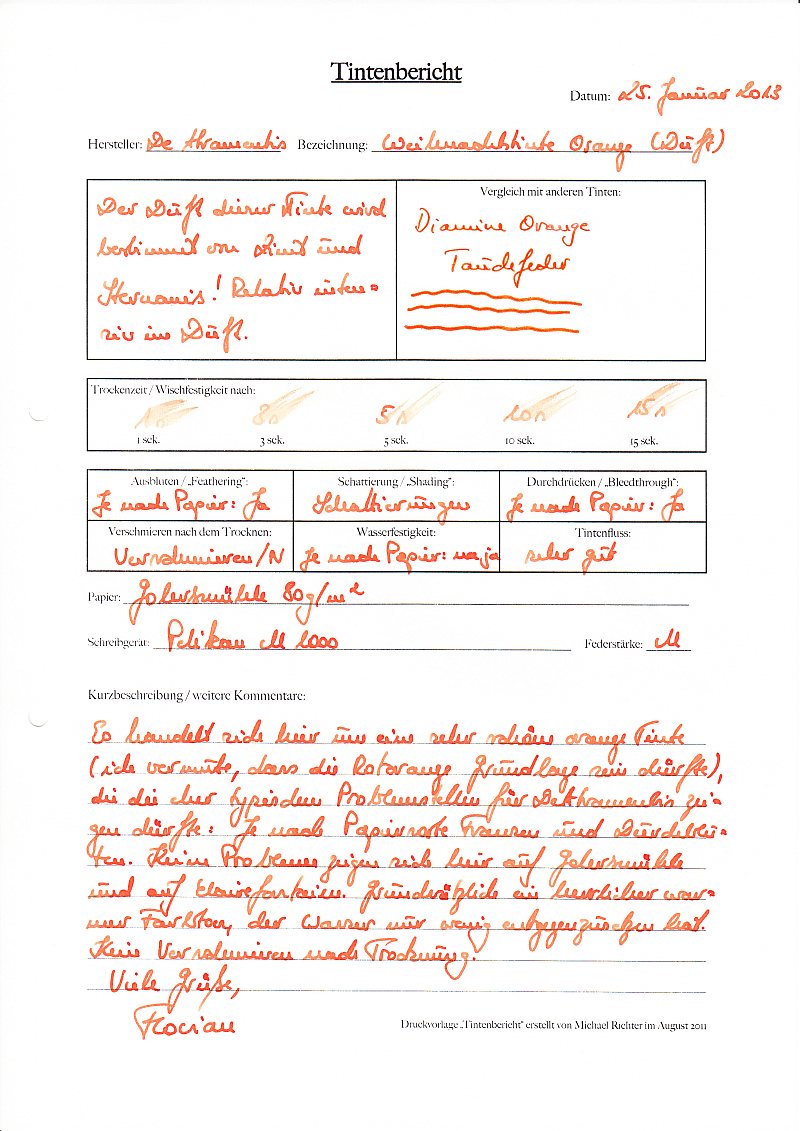 Tintenbericht
Datum: 25. Januar 2013
Hersteller: De Atramentis Bezeichnung: Weihnachtstinte Orange (Duft)
Der Duft dieser Tinte wird
bestimmt von Zimt und
Sternanis! Relativ inten-
siv im Duft.
Vergleich mit anderen Tinten:
Diamine Orange
Tauchfeder
Trockenzeit / Wischfestigkeit nach:
1s 3s 5s 10s 15s
1 sek. 3 sek. 5 sek. 10 sek. 15 sek.
Ausbluten / „Feathering“: Schattierung / „Shading“: Durchdrücken / „Bleedthrough“:
Je nach Papier: Ja Schattierungen Je nach Papier: Ja
Verschmieren nach dem Trocknen: Wasserfestigkeit: Tintenfluss:
Verschmieren/N Je nach Papier: na ja sehr gut
Papier: Gohrsmühle 80g/m²
Schreibgerät: Pelikan M 1000 Federstärke: M
Kurzbeschreibung / weitere Kommentare:
Es handelt sich hier um eine sehr schöne orange Tinte
(ich vermute, dass die Rotorange Grundlage sein dürfte),
die die eher typischen Problemstellen für DeAtramentis zei-
gen dürfte: Je nach Papiersorte Fransen und Durchblu-
ten. Keine Probleme zeigen sich hier auf Gohrsmühle
und auf Clairefontaine. Grundsätzlich ein herrlicher war-
mer Farbton, der Wasser nur wenig entgegenzusetzen hat.
Kein Verschmieren nach Trocknung.
Viele Grüße,
Florian
Druckvorlage „Tintenbericht“ erstellt von Michael Richter im August 2011